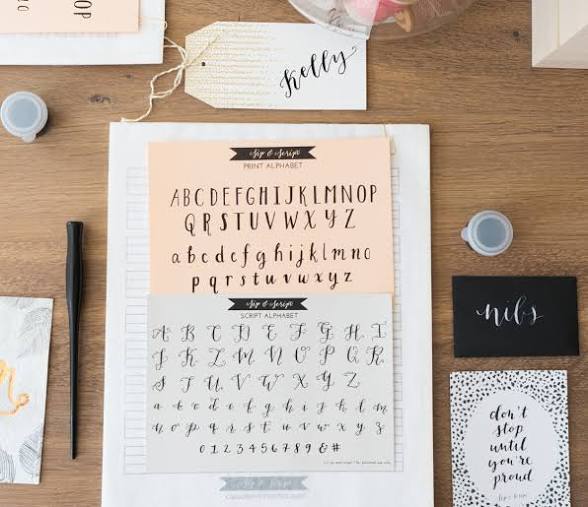 Kelly
Sip & Script
PRINT ALPHABET
ABCDEFGHIJKLMNOP
QRSTUVWXYZ
abcdefghijklmno
pqrstuvwxyz
Sip & Script
SCRIPT ALPHABET
A B C D E F G H I
J K L M N O P Q R
S T U V W X Y Z
a b c d e f g h i j k l m
n o p q r s t u v w x y z
0 1 2 3 4 5 6 7 8 9 & #
Sip & Script
nibs
don't
stop
until
you're
proud